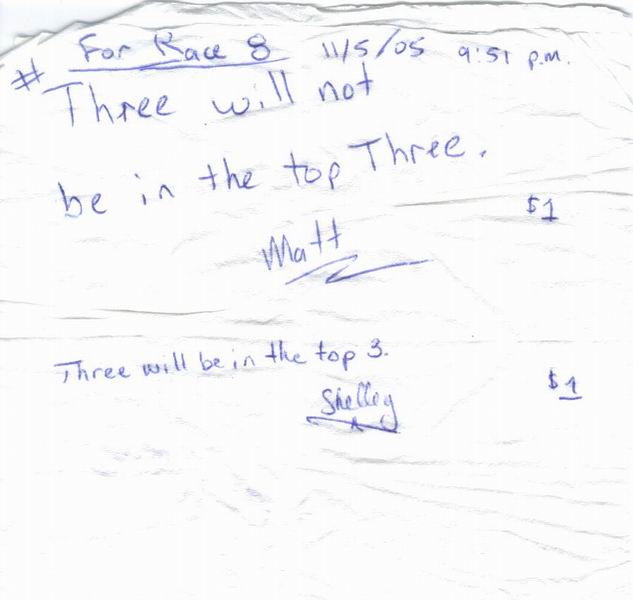 For Race 8 11/5/05 9:51 p.m.
# Three will not
be in the top Three.
$1
Matt
Three will be in the top 3.
$1
Shelley